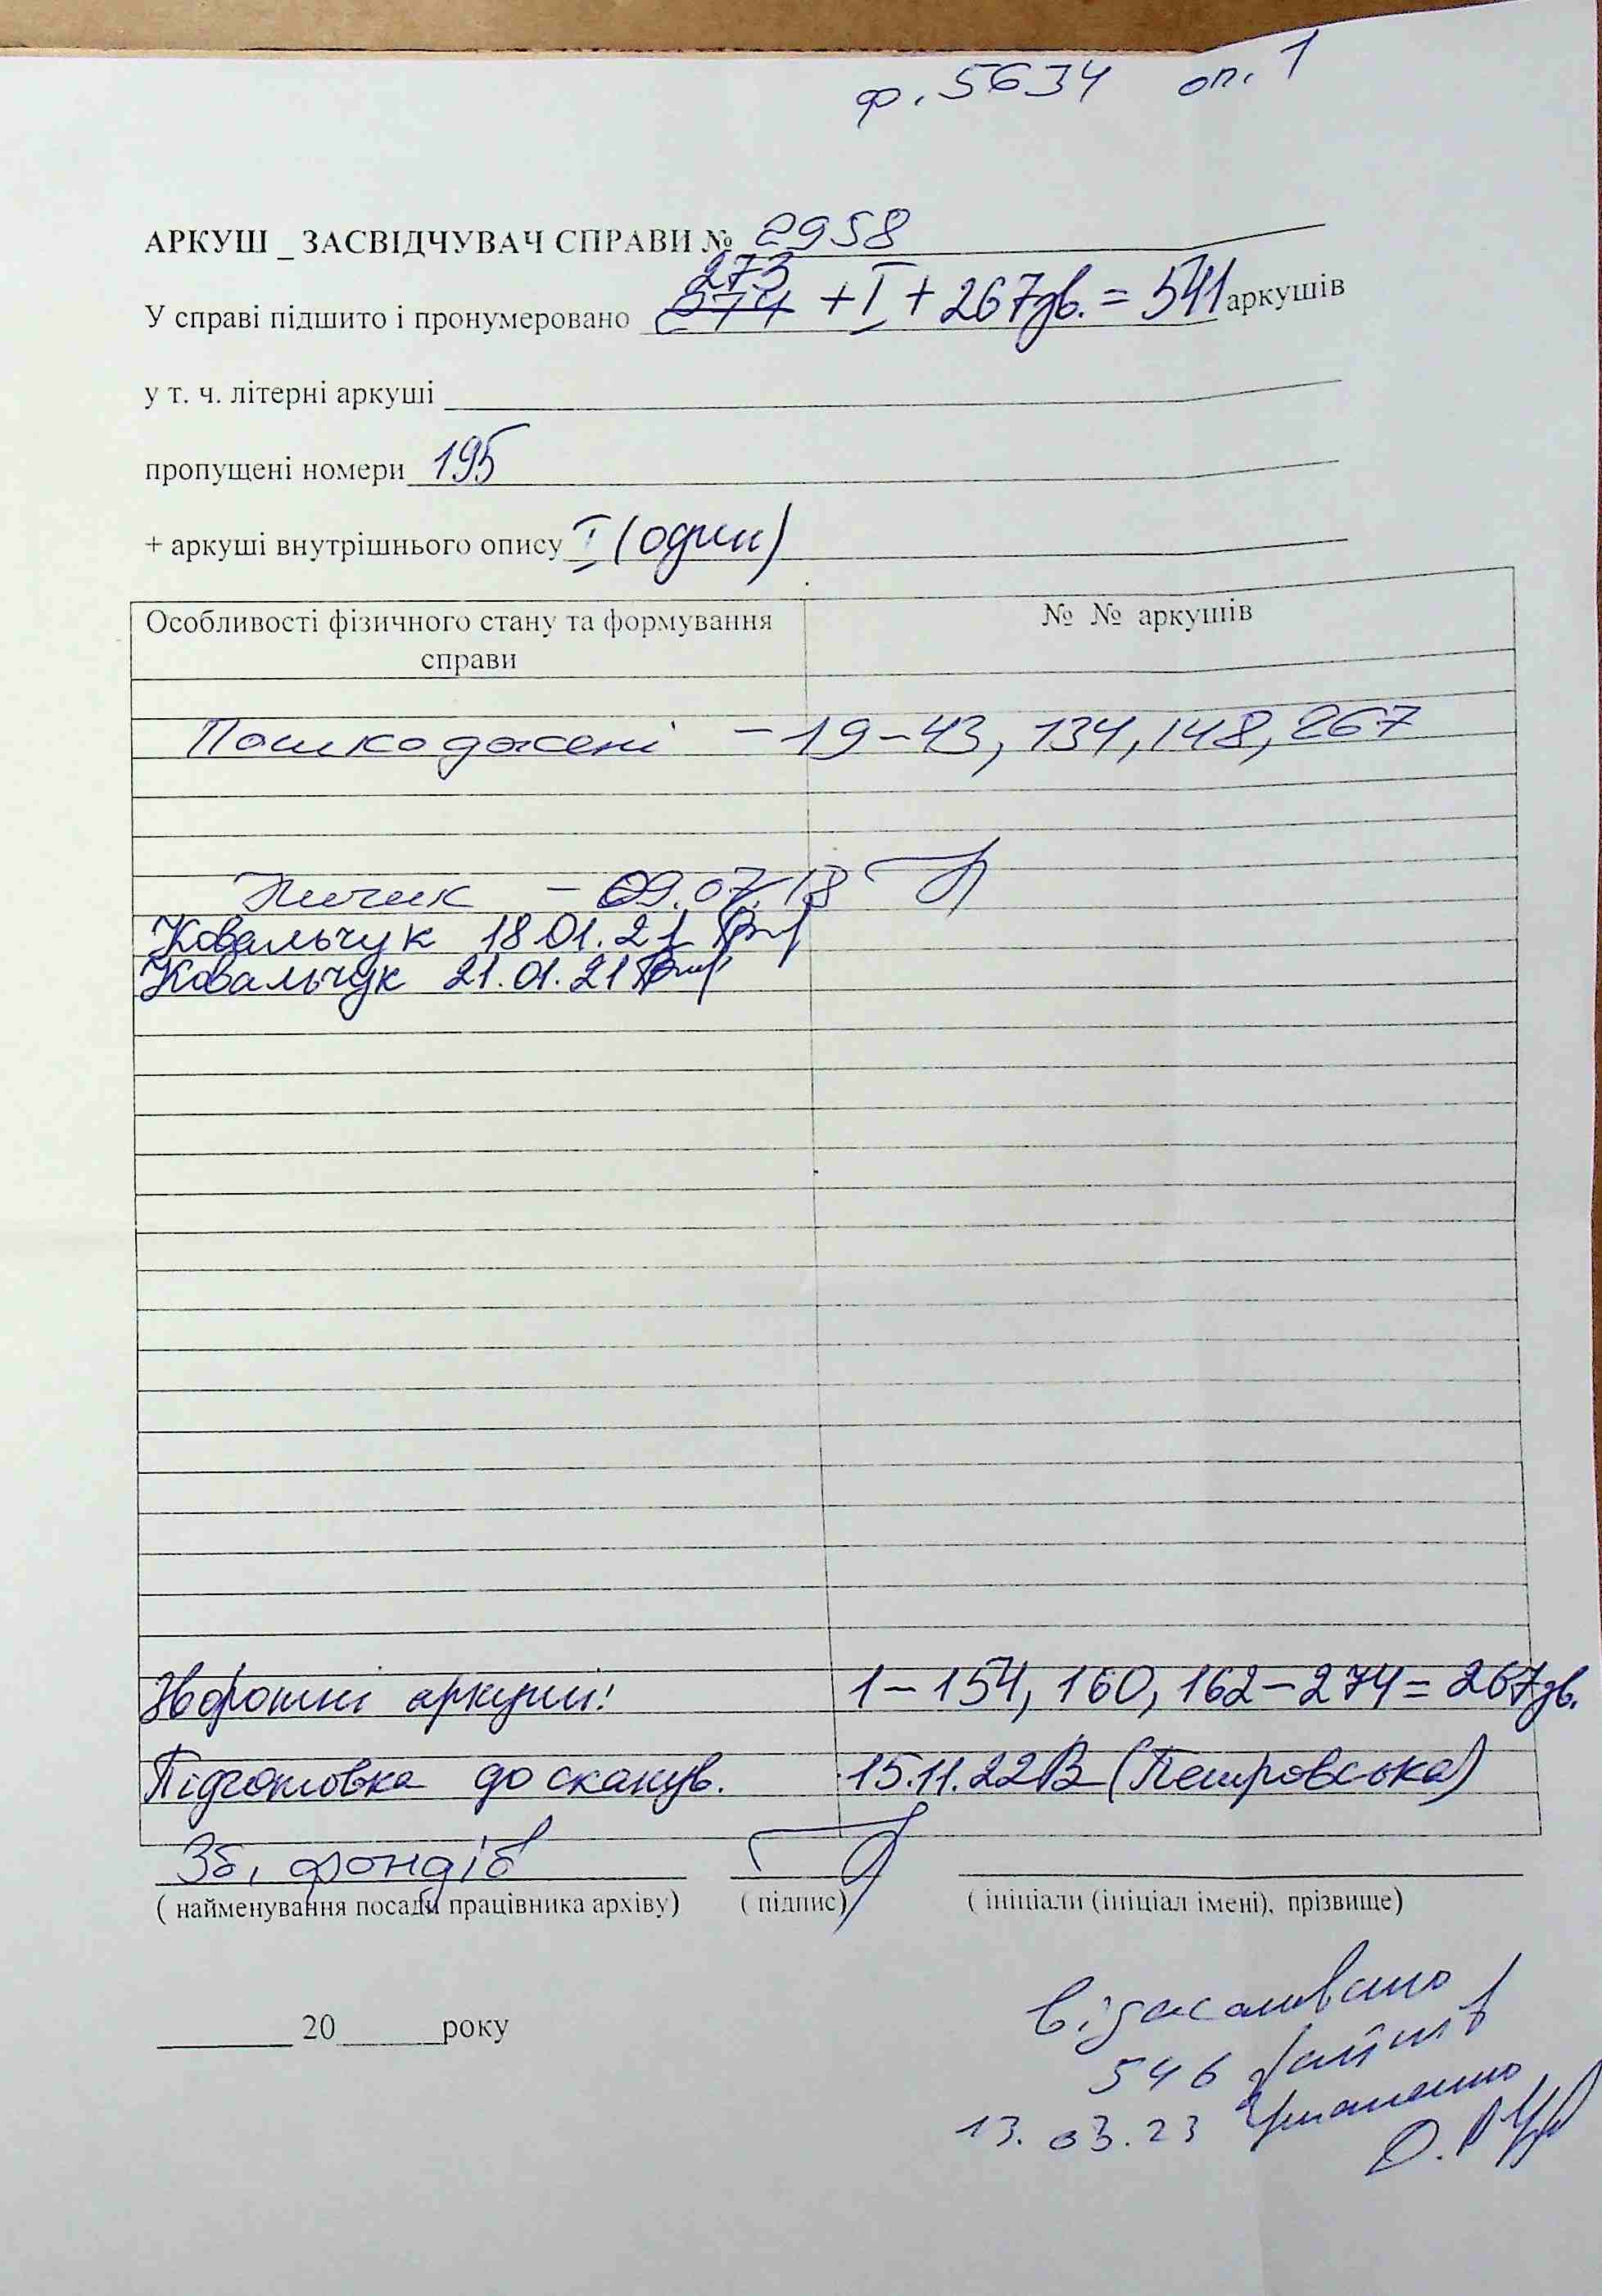 ф. 5634 оп. 1
АРКУШ _ ЗАСВІДЧУВАЧ СПРАВИ № 2958
273
У справі підшито і пронумеровано 274 + I + 267зв. = 541 аркушів
у т. ч. літерні аркуші
пропущені номери 195
+ аркуші внутрішнього опису I (один)
Особливості фізичного стану та формування справи № № аркушів
Пошкоджені – 19–43, 134, 148, 267
– 09.07.18
Ковальчук 18.01.21
Ковальчук 21.01.21
Зворотні аркуші: 1–154, 160, 162–274 = 267зв.
Підготовка до сканув. 15.11.22 (Петровська)
Зб. фондів
( найменування посади працівника архіву) ( підпис) ( ініціали (ініціал імені), прізвище)
20 року
Відскановано
546 файлів
13.03.23